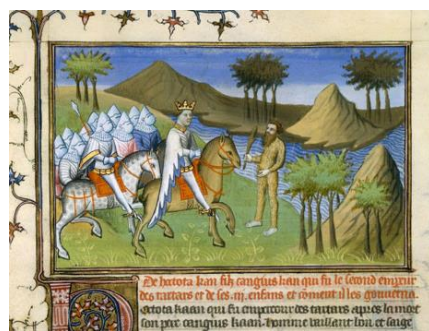 De hotota kan filz cangius kan qui fu le second empeur
des tartars et de ses .iij. enfans et coment il les gouverna.
Hotota kaan qui fu empereour des tartars apres la mort
son pere cangius kaan. homme vaillant bon et saige